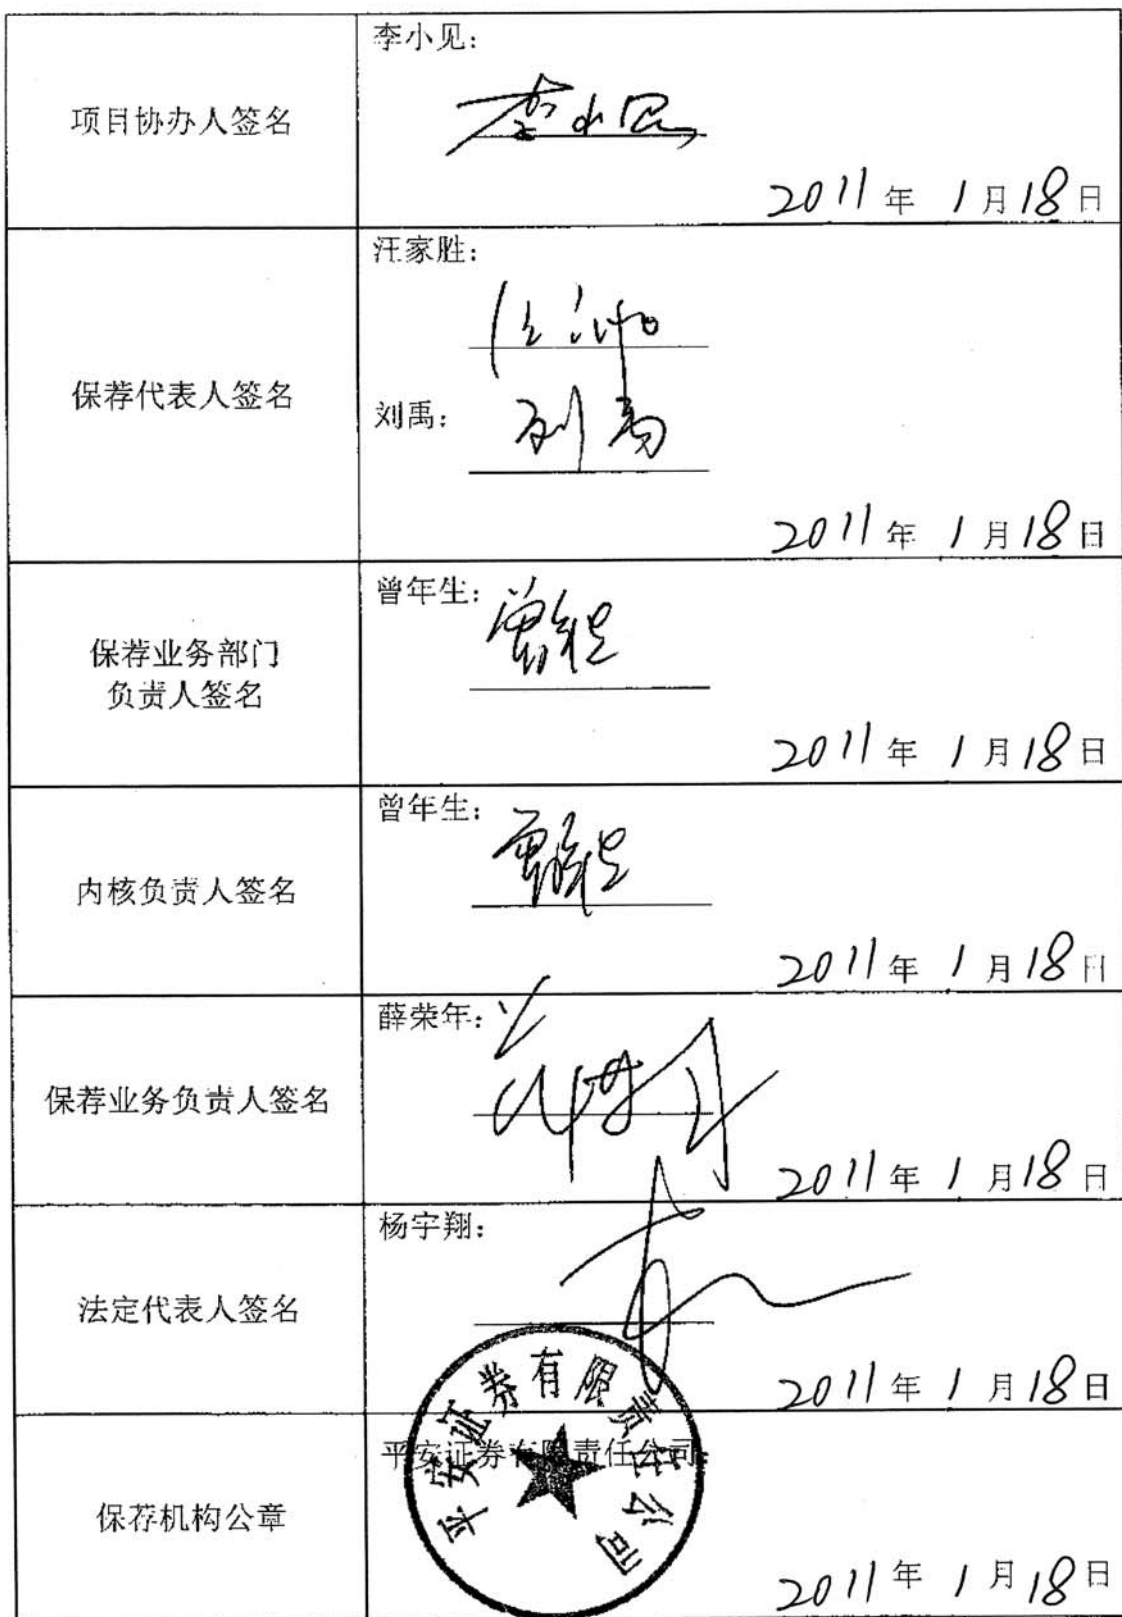 项目协办人签名
李小见：
李小见
2011年 1月18日
保荐代表人签名
汪家胜：
刘禹：
刘禹
2011年 1月18日
保荐业务部门
负责人签名
曾年生：
曾年生
2011年 1月18日
内核负责人签名
曾年生：
曾年生
2011年 1月18日
保荐业务负责人签名
薛荣年：
2011年 1月18日
法定代表人签名
杨宇翔：
2011年 1月18日
保荐机构公章
平安证券有限责任公司
平安证券有限责任公司
2011年 1月18日